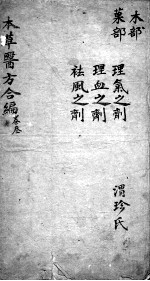 木部
菓部
理氣之劑
理血之劑
祛風之劑
渭珍氏
本草醫方合編
卷叁